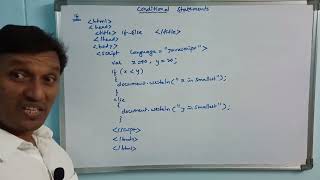 Conditional Statements
<html>
<head>
<title> if-else </title>
</head>
<body>
<script language="javascript">
var x=10, y=20;
if (x<y)
{
document.writeln("x is smallest");
}
else
{
document.writeln("y is smallest");
}
</script>
</body>
</html>